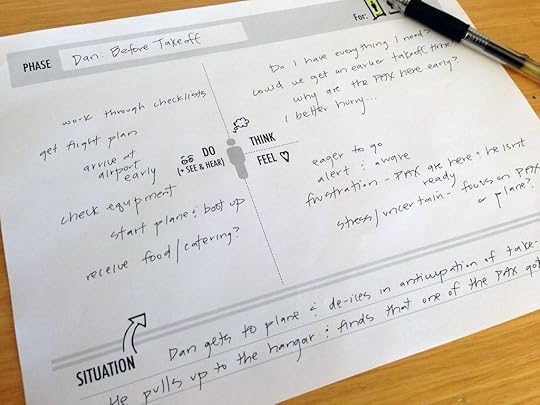 For:
PHASE
Dan: Before Takeoff
work through checklists
get flight plan
arrive at
airport
early
check equipment
start plane & boot up
receive food/catering?
DO
(+ SEE & HEAR)
THINK
FEEL
Do I have everything I need?
could we get an earlier takeoff time?
why are the PAX here early?
I better hurry...
eager to go
alert & aware
frustration - PAX are here & he isnt
ready
stress/uncertain - focus on PAX
or plane?
SITUATION
Dan gets to plane & de-ices in anticipation of take-
He pulls up to the hangar & finds that one of the PAX got